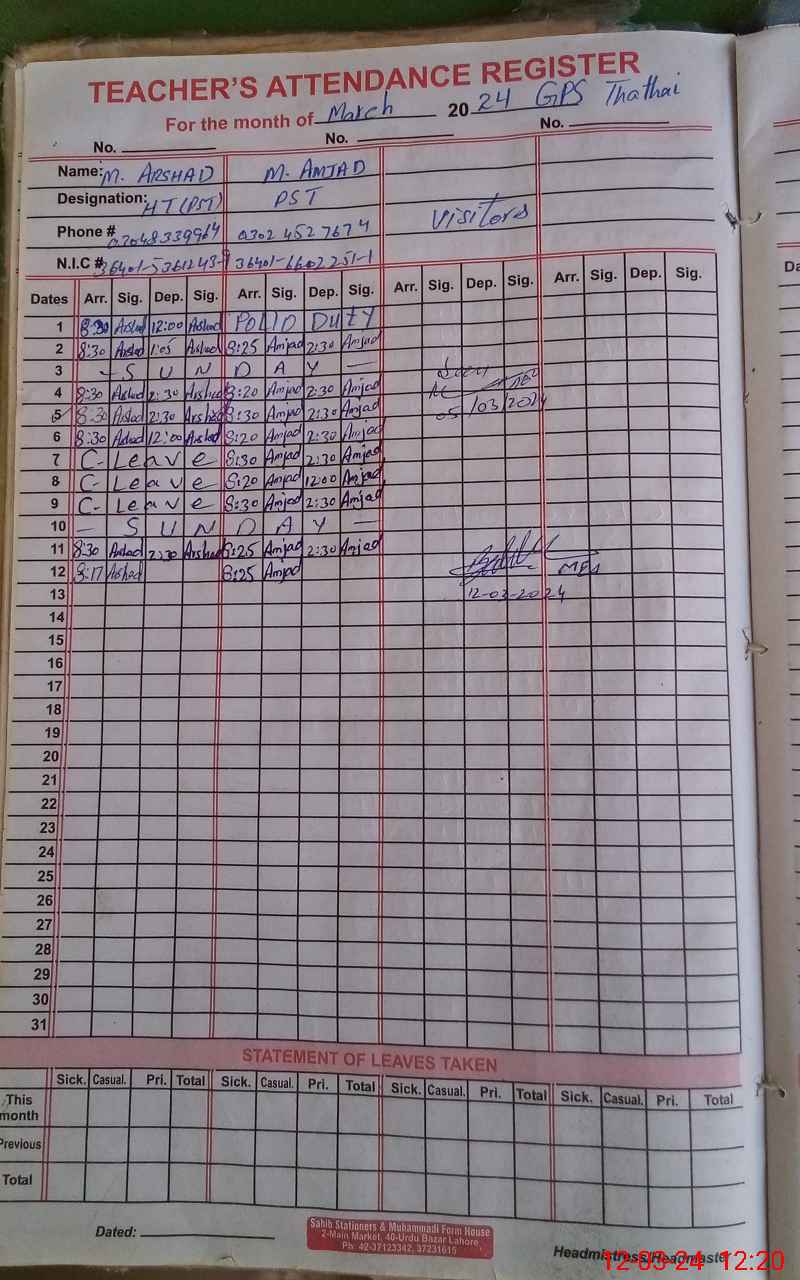 TEACHER'S ATTENDANCE REGISTER
For the month of March 2024 GPS Thathai
No. No. No.
Name: M. ARSHAD M. AMJAD
Designation: HT (PST) PST
Visitors
Phone # 03048339964 0302 4527674
N.I.C # 36401-5361243-9 36401-6602251-1
Dates Arr. Sig. Dep. Sig. Arr. Sig. Dep. Sig. Arr. Sig. Dep. Sig. Arr. Sig. Dep. Sig.
1 8:30 Arshad 12:00 Arshad POLIO DUTY
2 8:30 Arshad 1:05 Arshad 8:25 Amjad 2:30 Amjad
3 - S U N D A Y -
4 8:30 Arshad 2:30 Arshad 8:20 Amjad 2:30 Amjad
5 8:30 Arshad 2:30 Arshad 8:30 Amjad 2:30 Amjad 05/03/2024
6 8:30 Arshad 12:00 Arshad 8:20 Amjad 2:30 Amjad
7 C- Leave 8:30 Amjad 2:30 Amjad
8 C- Leave 8:20 Amjad 12:00 Amjad
9 C- Leave 8:30 Amjad 2:30 Amjad
10 - S U N D A Y -
11 8:30 Arshad 2:30 Arshad 8:25 Amjad 2:30 Amjad
12 8:17 Arshad 8:25 Amjad MEA
13 12-03-2024
14
15
16
17
18
19
20
21
22
23
24
25
26
27
28
29
30
31
STATEMENT OF LEAVES TAKEN
Sick. Casual. Pri. Total Sick. Casual. Pri. Total Sick. Casual. Pri. Total Sick. Casual. Pri. Total
This
month
Previous
Total
Dated:
Sahib Stationers & Muhammadi Form House
2-Main Market, 40-Urdu Bazar Lahore,
Ph: 42-37123342, 37231615
Headmistress/Headmaste
12-03-24 12:20